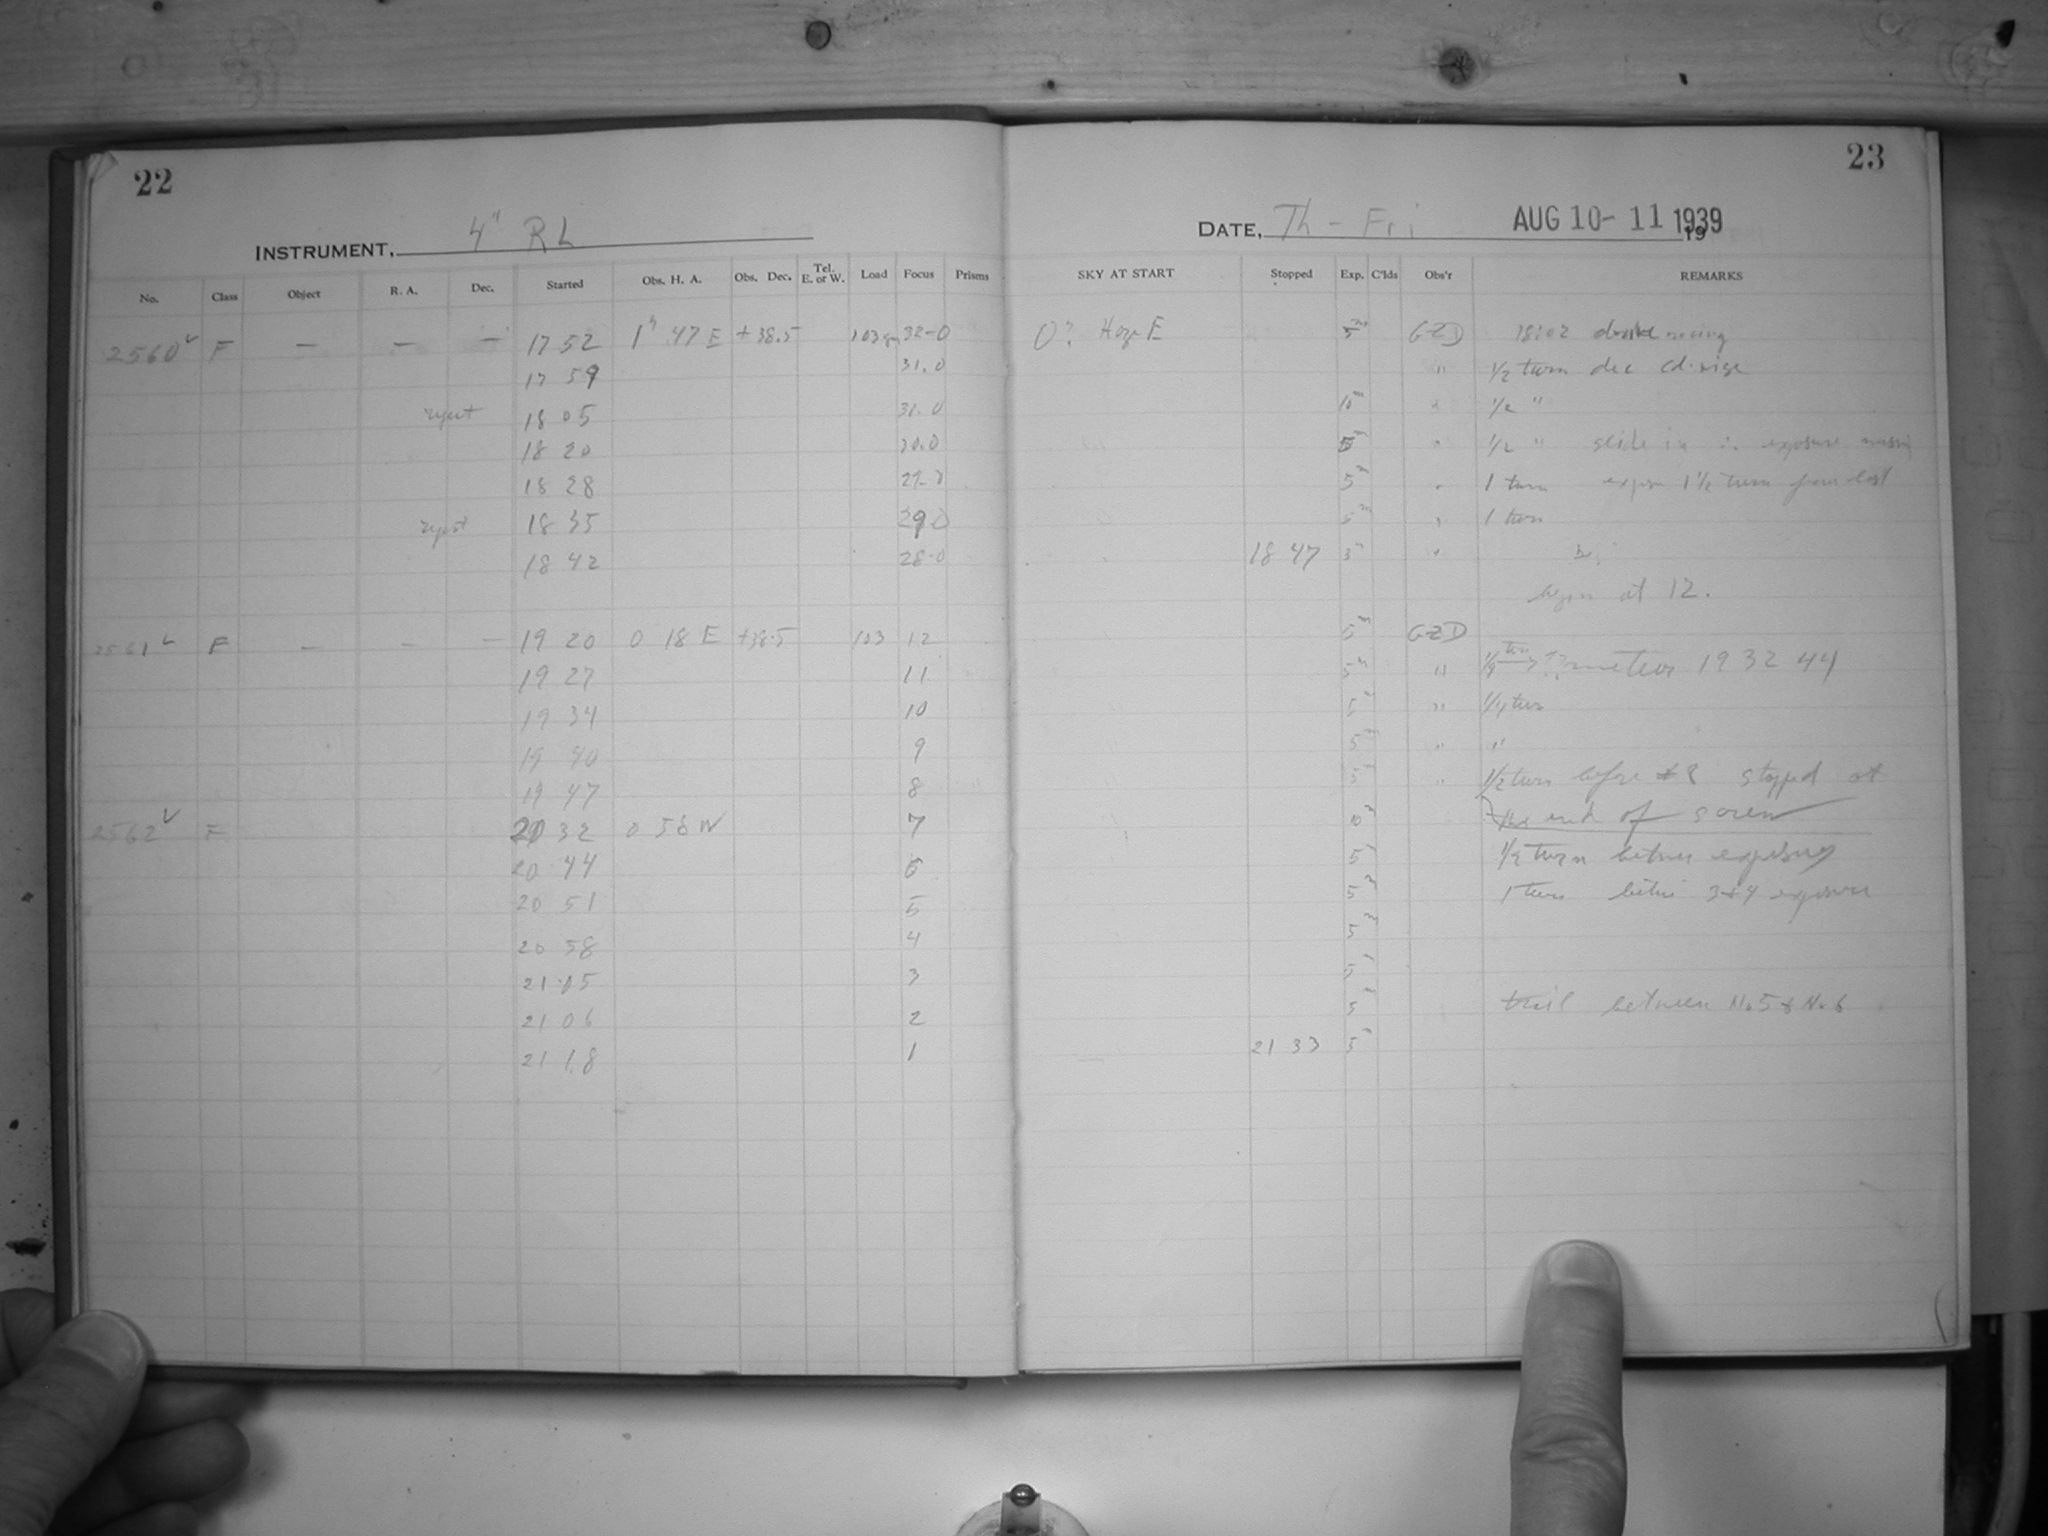 22
INSTRUMENT, 4" RL
No. Class Object R. A. Dec. Started Obs. H. A. Obs. Dec. Tel. E. or W. Load Focus Prisms
2560 F — — — 17 52 1h 47 E +38.5 103 32-0
17 59 31.0
18 05 31.0
18 20 30.0
18 28
18 35 29.0
18 42 28.0
2561 F — — — 19 20 0 18 E +38.5 103 12
19 27 11
19 34 10
19 40 9
19 47 8
2562 F 20 32 0 56 W 7
20 44 6
20 51 5
20 58 4
21 05 3
21 06 2
21 18 1
23
DATE, Th - Fri AUG 10-11 1939
19
SKY AT START Stopped Exp. C'lds Obs'r REMARKS
0? Haze E 5m GZD 18:02
" 1/2 turn dec
10m " 1/2 "
5m " 1/2 " slide in exposure
5m " 1 turn 1 1/2 turn from last
5m " 1 turn
18 47 "
begin at 12.
5m GZD
5m " meteor 19 32 44
5m " 1/4 turn
5m " "
5m " 1/2 turn before #8 stopped at
10m end of screw
5m 1/2 turn between exposures
5m 1 turn 3+4 exposures
5m
5m
5m trail between No 5 & No 6
21 33 5m